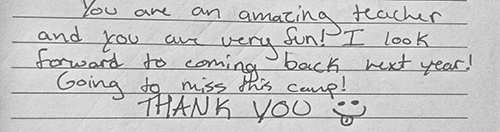 You are an amazing teacher
and you are very fun! I look
forward to coming back next year!
Going to miss this camp!
THANK YOU